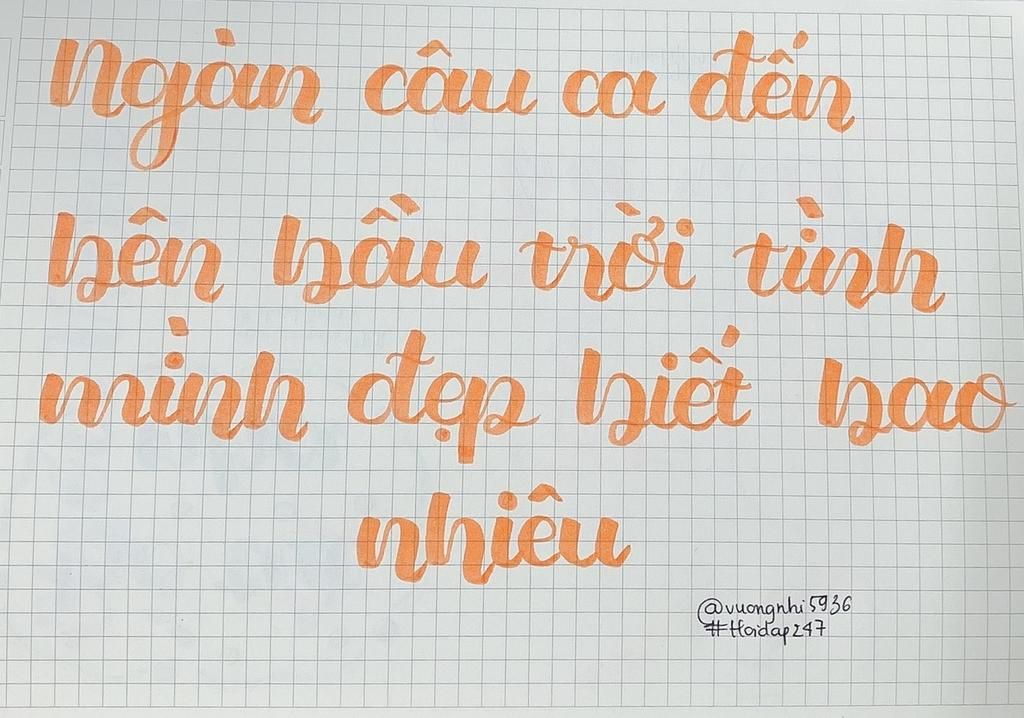 Ngàn câu ca đến
bên bầu trời tình
mình đẹp biết bao
nhiêu
@vuongnhi5936
#Hoidap247